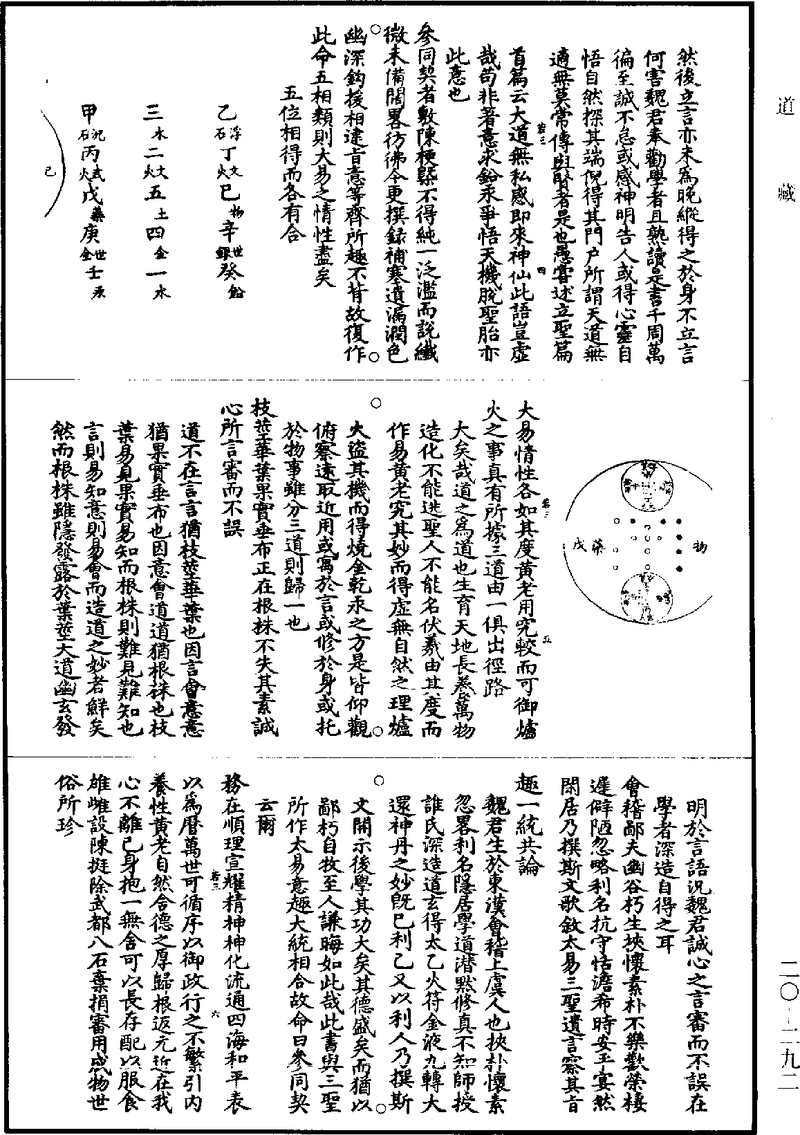 道藏
然後立言亦未為晚縱得之於身不立言
何害魏君奉勸學者且熟讀是書千周萬
徧至誠不怠或感神明告人或得心靈自
悟自然探其端倪得其門户所謂天道無
適無莫常傳與賢者是也愚嘗述立聖篇
首篇云大道無私感即來神仙此語豈虛
哉苟非著意求鉛汞爭悟天機脫聖胎亦
此意也
參同契者敷陳梗槩不得純一泛濫而說纖
微未備闊畧彷彿今更撰録補塞遺漏潤色
幽深鈎援相逮旨意等齊所趣不背故復作
此命五相類則大易之情性盡矣
五位相得而各有合
乙浮石丁文火己物辛世銀癸鉛
三木二火五土四金一水
甲沉石丙武火戊藥庚世金壬汞
己
物
藥戊
大易情性各如其度黃老用究較而可御爐
火之事真有所據三道由一俱出徑路
大矣哉道之為道也生育天地長養萬物
造化不能逃聖人不能名伏羲由其度而
作易黃老究其妙而得虛無自然之理爐
火盜其機而得燒金乾汞之方是皆仰觀
俯察遠取近用或寓於言或修於身或托
於物事雖分三道則歸一也
枝莖華葉果實垂布正在根株不失其素誠
心所言審而不誤
道不在言言猶枝莖華葉也因言會意意
猶果實垂布也因意會道道猶根株也枝
葉易見果實易知而根株則難見難知也
言則易知意則易會而造道之妙者鮮矣
然而根株雖隱發露於葉莖大道幽玄發
明於言語況魏君誠心之言審而不誤在
學者深造自得之耳
會稽鄙夫幽谷朽生挾懷素朴不樂歡榮棲
遲僻陋忽略利名抗守恬澹希時安平宴然
閑居乃撰斯文歌敘太易三聖遺言察其旨
趣一統共論
魏君生於東漢會稽上虞人也挾朴懷素
忽畧利名隱居學道潜默修真不知師授
誰氏深造道玄得太乙火符金液九轉大
還神丹之妙既已利己又以利人乃撰斯
文開示後學其功大矣其德盛矣而猶以
鄙朽自牧至人謙晦如此哉此書與三聖
所作太易意趣大統相合故命曰參同契
云爾
務在順理宣耀精神神化流通四海和平表
以為曆萬世可循序以御政行之不繁引內
養性黃老自然含德之厚歸根返元近在我
心不離己身抱一無舍可以長存配以服食
雄雌設陳挺除武都八石棄捐審用成物世
俗所珍
二〇-二九二